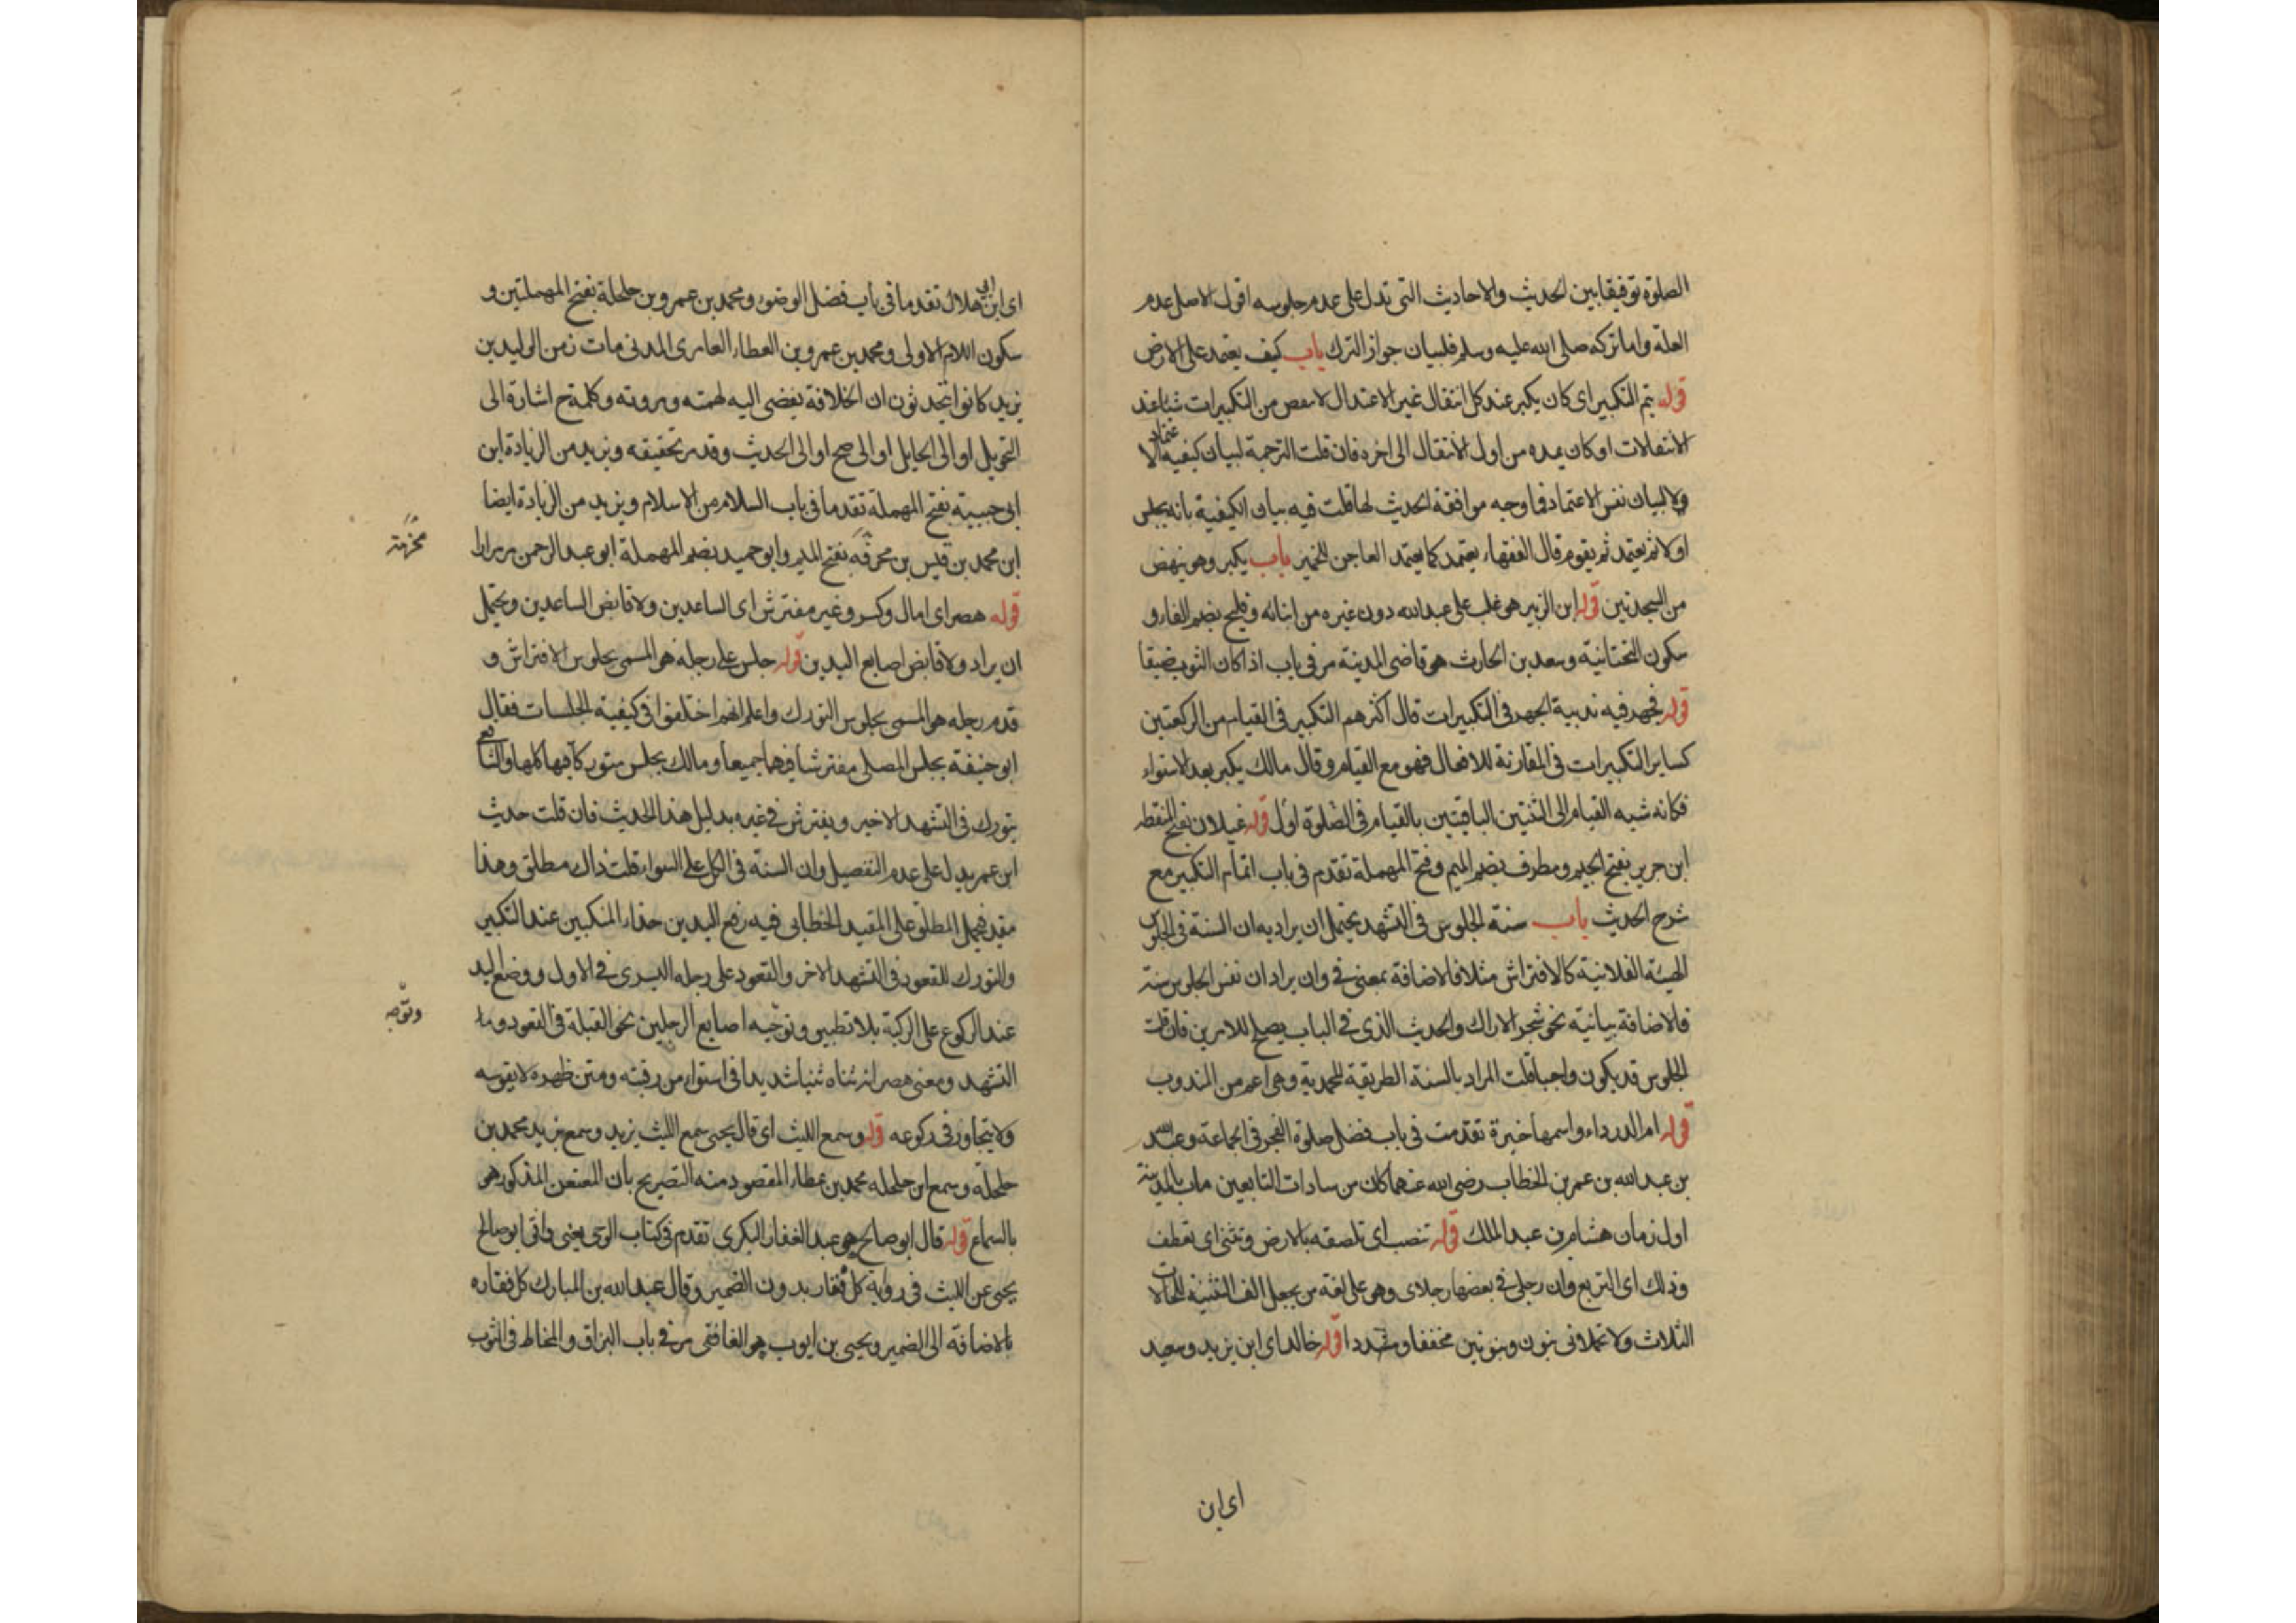 الصلوة توفيقا بين الحديث والاحاديث التى تدل على عدم جلوسه اقول الاصل عدم
العلة واما تركه صلى الله عليه وسلم فلبيان جواز الترك باب كيف يعتمد على الارض
قوله يتم التكبير اى كان يكبر عند كل انتقال غير الاعتدال لا ينقص من التكبيرات شيا عند
الانتقالات او كان يمده من اول الانتقال الى اخره فان قلت الترجمة لبيان كيفية الاعتماد
ولا لبيان نفس الاعتماد فما وجه موافقة الحديث لها قلت فيه بيان الكيفية بانه يجلس
اولا ثم يعتمد ثم يقوم قال الفقهاء يعتمد كما يعتمد العاجن للخمير باب يكبر وهو ينهض
من السجدتين قوله ابن الزبير هو غلب على عبدالله دون غيره من ابنائه وفليح بضم الفاء و
سكون التحتانية وسعد بن الحارث هو قاضى المدينة مر فى باب اذا كان الثوب ضيقا
قوله فجهر فيه ندبية الجهر فى التكبيرات قال اكثرهم التكبير فى القيام من الركعتين
كساير التكبيرات فى المقارنة للافعال فهو مع القيام وقال مالك يكبر بعد الاستواء
فكانه شبه القيام الى الثنتين الباقيتين بالقيام فى الصلوة اول قوله غيلان بفتح المنقطه
ابن جرير بفتح الجيم ومطرف بضم الميم وفتح المهملة تقدم فى باب اتمام التكبير مع
شرح الحديث باب سنة الجلوس فى التشهد يحتمل ان يراد به ان السنة فى الجلوس
الهيئة الفلانية كالافتراش مثلا فالاضافة بمعنى فى وان يراد ان نفس الجلوس سنة
فالاضافة بيانية نحو شجر الاراك والحديث الذى فى الباب يصلح للامرين فان قلت
الجلوس قد يكون واجبا قلت المراد بالسنة الطريقة المحمدية وهى اعم من المندوب
قوله ام الدرداء واسمها خيرة تقدمت فى باب فضل صلوة الفجر فى الجماعة وعبد الله
بن عبد الله بن عمر بن الخطاب رضى الله عنهما كان من سادات التابعين مات بالمدينة
اول زمان هشام بن عبد الملك قوله تنصب اى تلصقه بالارض وتثنى اى تعطف
وذلك اى التربع وان رجلى فى بعضها رجلاى وهو على لغة من يجعل الف التثنية للحالات
الثلاث ولا تحملانى بنون وبنونين مخففا ومشددا قوله خالد اى ابن يزيد وسعيد
اى ابن
اى ابن ابى هلال تقدما فى باب فضل الوضوء ومحمد بن عمرو بن حلحلة بفتح المهملتين و
سكون اللام الاولى ومحمد بن عمرو بن العطاء العامرى المدنى مات زمن الوليد بن
يزيد كانوا يتحدثون ان الخلافة تفضى اليه لهمته ومروته وكلمة ح اشارة الى
التحويل او الى الحايل او الى صح او الى الحديث وقد مر تحقيقه ويزيد من الزيادة ابن
ابى حبيبة بفتح المهملة تقدما فى باب السلام من الاسلام ويزيد من الزيادة ايضا
ابن محمد بن قيس بن مخرمة بفتح الميم وابو حميد بضم المهملة ابو عبد الرحمن مر مرارا
مخرمة
قوله هصر اى امال وكسر وغير مفترش اى الساعدين ولا قابض الساعدين ويحتمل
ان يراد ولا قابض اصابع اليدين قوله جلس على رجله هو المسمى بجلوس الافتراش و
قدم رجله هو المسمى بجلوس التورك واعلم انهم اختلفوا فى كيفية الجلسات فقال
ابو حنيفة يجلس المصلى مفترشا فيهما جميعا ومالك يجلس متوركا فيها كلها والشافعى
يتورك فى التشهد الاخير ويفترش فى غيره بدليل هذا الحديث فان قلت حديث
ابن عمر يدل على عدم التفصيل وان السنة فى الكل على السواء قلت ذاك مطلق وهذا
مقيد فيحمل المطلق على المقيد الخطابى فيه رفع اليدين حذاء المنكبين عند التكبير
والتورك للقعود فى التشهد الاخر والقعود على رجله اليسرى فى الاول ووضع اليد
عند الركوع على الركبة بلا تطبيق وتوجيه اصابع الرجلين نحو القبلة فى القعود و
وتوجيه
التشهد ومعنى هصر انه ثناه ثنيا شديدا فى استواء من رقبته ومتن ظهره لا يقوسه
ولا يتحاوز فى ركوعه قوله وسمع الليث اى قال يحيى سمع الليث يزيد وسمع يزيد محمد بن
حلحلة وسمع ابن حلحله محمد بن عطاء المقصود منه التصريح بان المعنعن المذكور هو
بالسماع قوله قال ابو صالح هو عبد الغفار البكرى تقدم فى كتاب الوحى يعنى وافق ابو صالح
يحيى عن الليث فى رواية كل فقار بدون الضمير وقال عبد الله بن المبارك كل فقاره
بالاضافة الى الضمير ويحيى بن ايوب هو الغافقى مر فى باب البزاق والمخاط فى الثوب